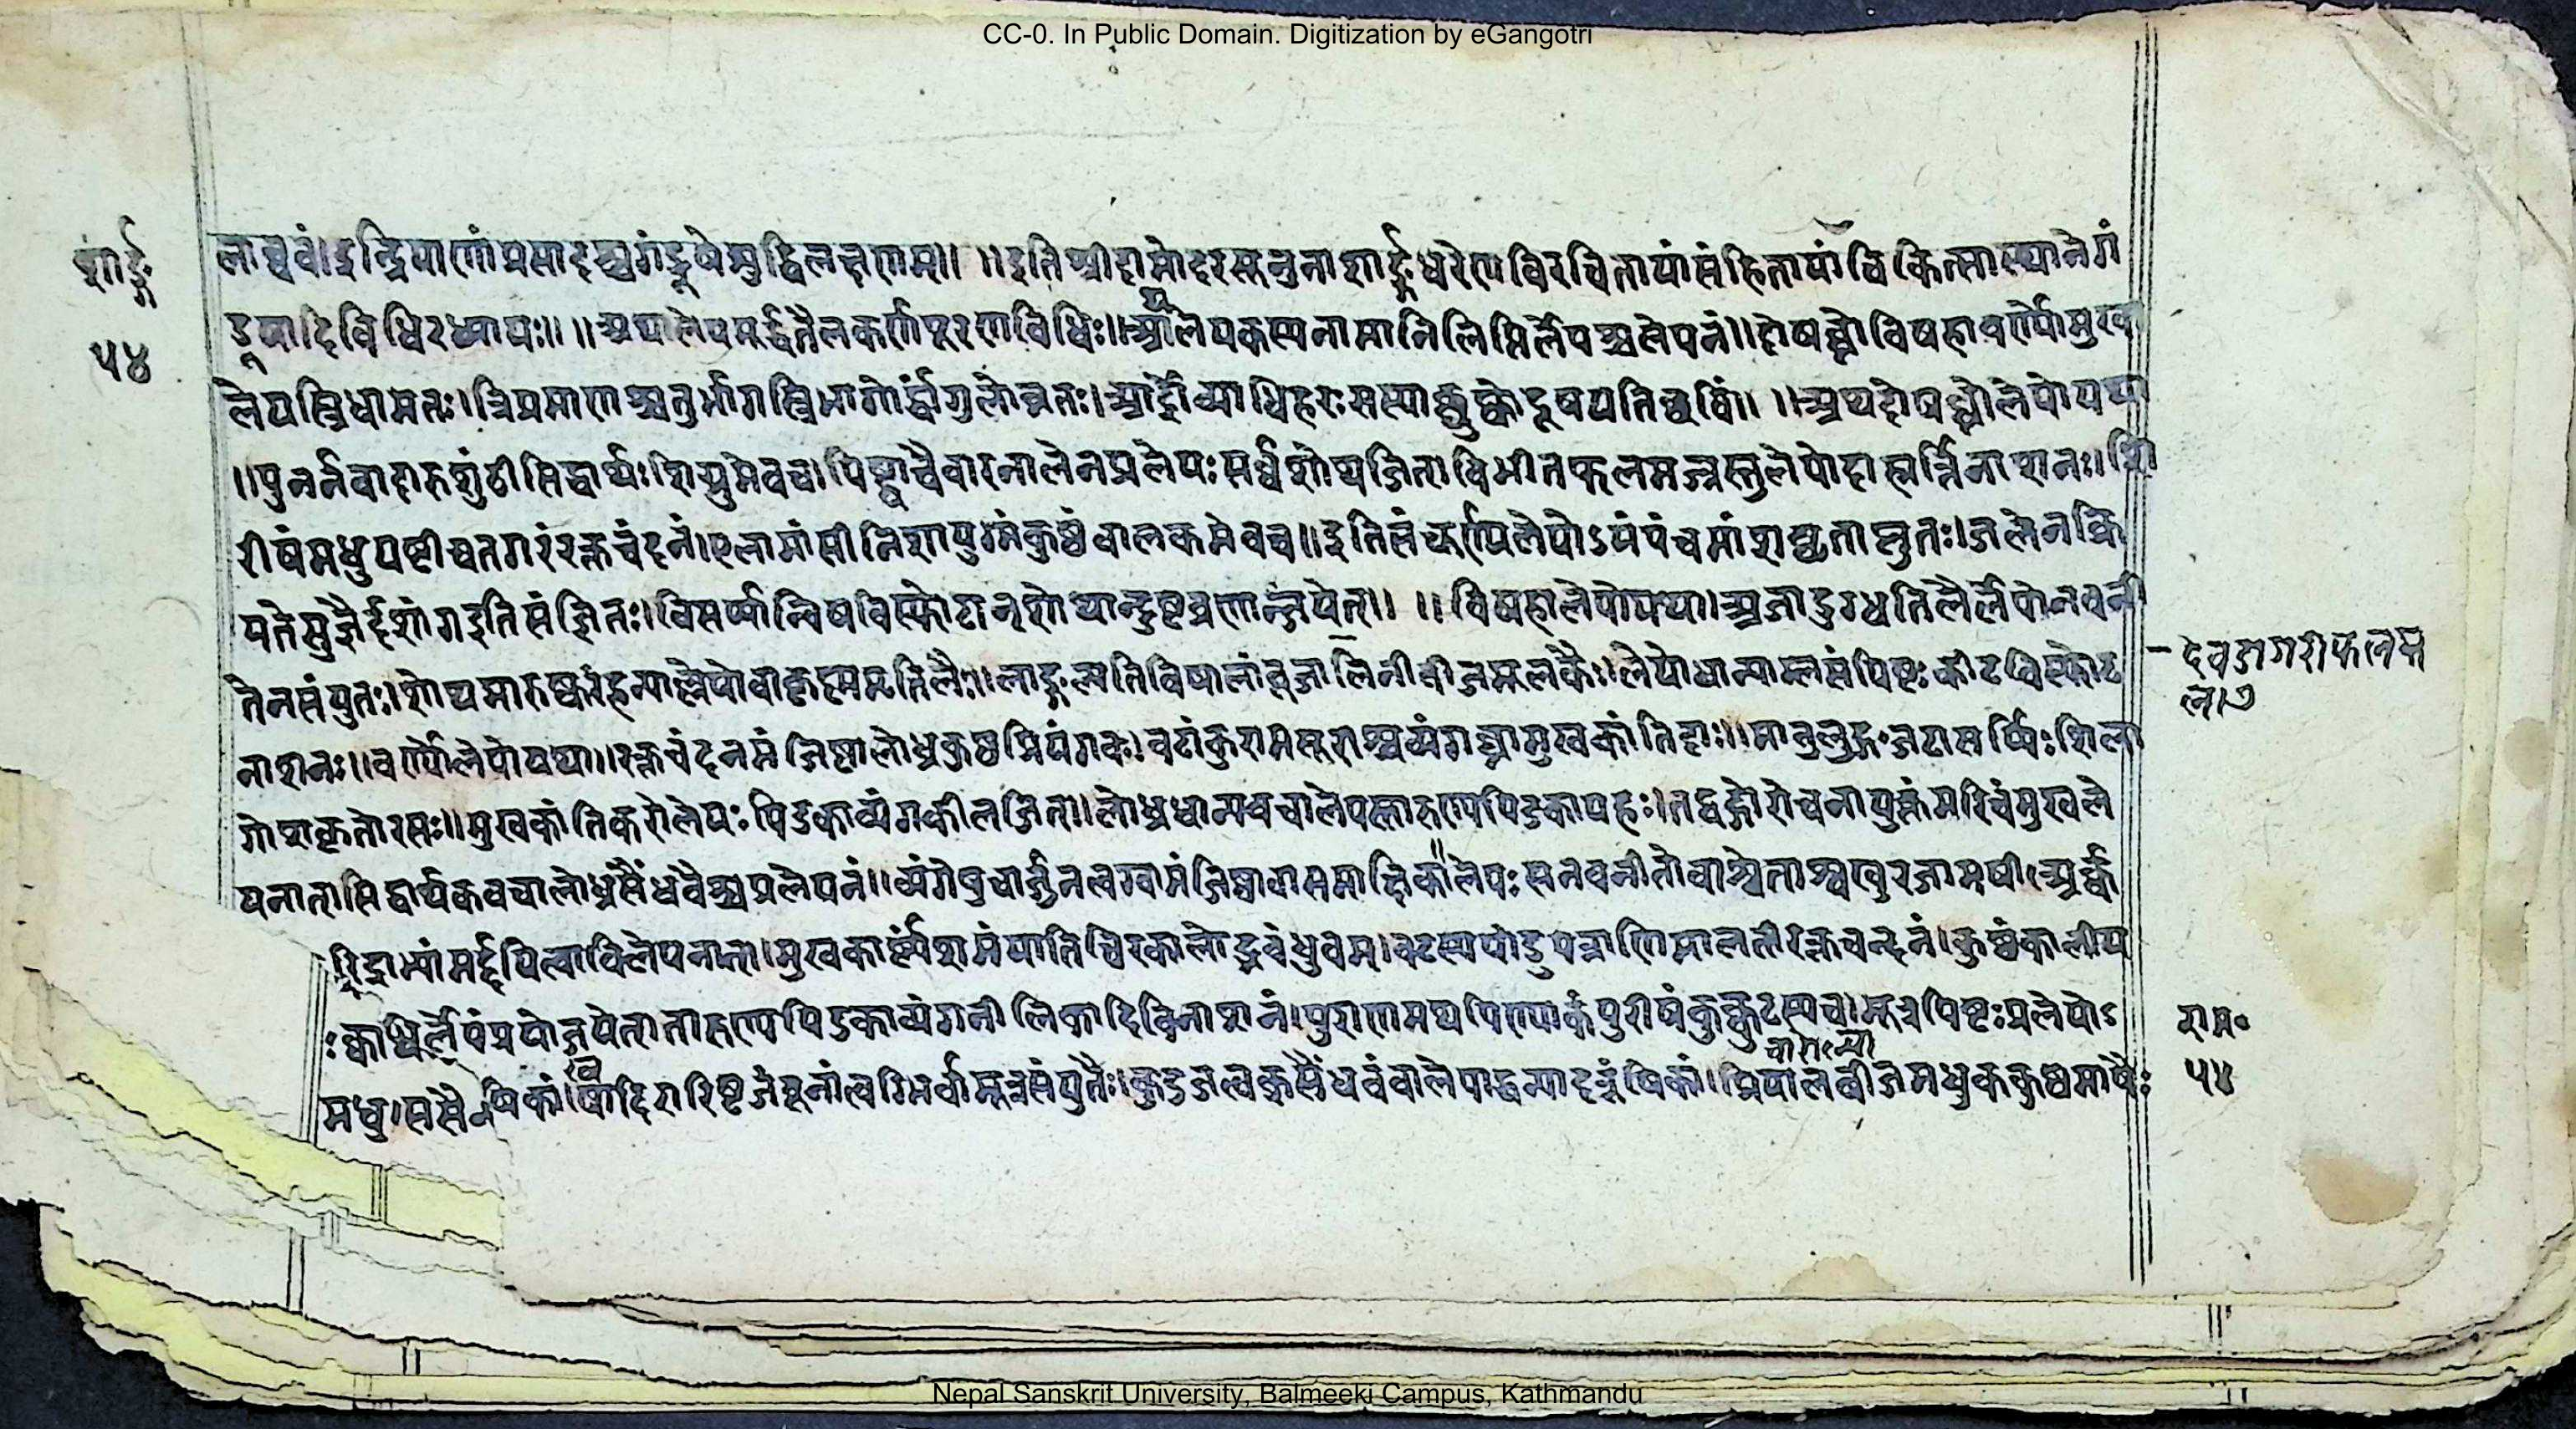 CC-0. In Public Domain. Digitization by eGangotri
शार्ङ्ग
५४
लाघवं।इन्द्रियाणांप्रसादश्चगंडूषेशुद्धिलक्षणम्।। ।।इतिश्रीदामोदरसूनुनाशार्ङ्गधरेणविरचितायांसंहितायांचिकित्सास्थानेगं
डूषादिविधिरध्यायः।। ।।अथालेपमूर्द्धतैलकर्णपूरणविधिः।।आलेपकस्यनामानिलिप्तिर्लेपश्चलेपनं।।दोषघ्नोविषहावर्ण्योमुख
लेपस्त्रिधामतः।त्रिप्रमाणश्चतुर्भागस्त्रिभागोर्द्धांगुलोन्नतः।आर्द्रोव्याधिहरःसस्याच्छुष्कोदूषयतिछविं।। ।।अथदोषघ्नोलेपोयथा
।।पुनर्नवादारुशुंठीसिद्धार्थःशिग्रुमेवच।पिष्ट्वाचैवारनालेनप्रलेपःसर्वशोथजित्।विभीतफलमज्जस्तुलेपोदाहार्त्तिनाशनः।।शि
रीषंमधुयष्टीचतगरंरक्तचंदनं।एलामांसीनिशायुग्मंकुष्ठंवालकमेवच।।इतिसंचूर्ण्यलेपोऽयंपंचमांशघृताप्लुतः।जलेनक्रि
यतेसुज्ञैर्दशांगइतिसंज्ञितः।विसर्पान्विषविस्फोटान्शोथान्दुष्टव्रणान्जयेत्।। ।।विषहालेपोयथा।अजादुग्धतिलैर्लेपोनवनी
तेनसंयुतः।शोथमारुष्करंहन्याल्लेपोवाकृष्णमृत्तिलैः।।लाङ्गल्यतिविषालांबूजालिनीबीजमूलकैः।लेपोधान्याम्लसंपिष्टःकीटविस्फोट
देवडागरीफल
नाशनः।।वर्ण्योलेपोयथा।।रक्तचंदनमंजिष्ठालोध्रकुष्ठप्रियंगवः।वटांकुरामसूराश्चव्यंगघ्नामुखकांतिदाः।।मातुलुङ्गजटासर्प्पिःशिला
गोशकृतोरसः।।मुखकांतिकरोलेपःपिडकाव्यंगकीलजित्।।लोध्रधान्यवचालेपस्तारुण्यपिडकापहः।तद्वद्गोरोचनायुक्तंमरिचंमुखले
पनात्।सिद्धार्थकवचालोध्रसैंधवैश्चप्रलेपनं।।व्यंगेषुचार्जुनत्वग्वामंजिष्ठावासमाक्षिका।लेपःसनवनीतोवाश्वेताश्वखुरजामषी।अर्क्क
रिद्राभ्यांमर्द्दयित्वाविलेपनात्।मुखकार्ष्ण्यंशमंयातिचिरकालोद्भवंध्रुवम्।वटस्यपांडुपत्राणिमालतीरक्तचन्दनं।कुष्ठंकालीय
भिर्लेपंप्रयोजयेत्।तारुण्यपिडकाव्यंगनीलिकादिविनाशनं।पुराणमथपिण्याकंपुरीषंकुक्कुटस्यच।मूत्रपिष्टःप्रलेपोऽ
राम॰
५४
षिकां।खदिरारिष्टजंबूनांत्वग्भिर्वामूत्रसंयुतैः।कुटजत्वक्सैंधवंवालेपाद्धन्यादरूंषिकां।प्रियालबीजमधुककुष्ठमाषैः
Nepal Sanskrit University, Balmeeki Campus, Kathmandu